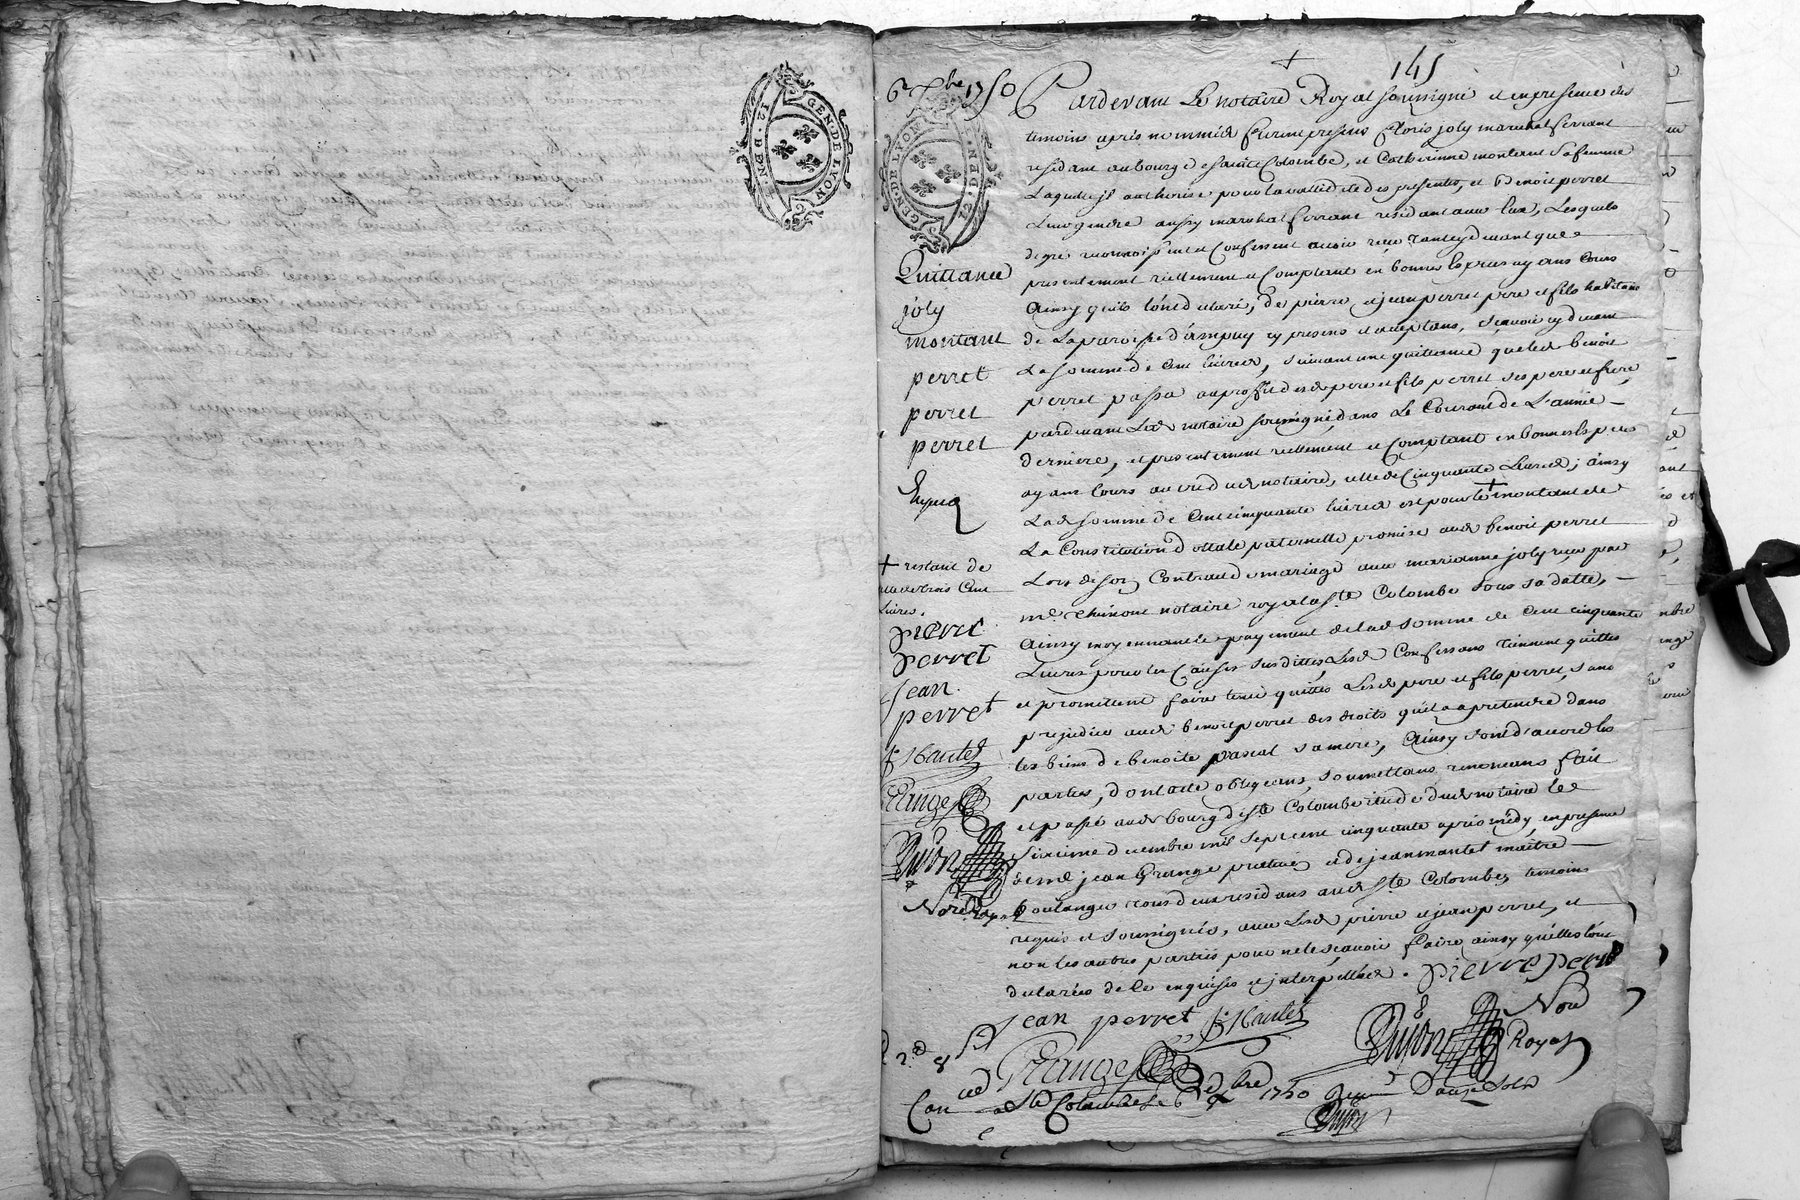 GEN. DE LYON
12. DEN.
145
6e Xbre 1750
GEN. DE LYON
12. DEN.
Quittance
joly
montant
perret
perret
perret
Pardevant Le notaire Royal soussigné et en presence des
temoins aprés nommés furent presens floris joly marechal ferrant
residant au bourg de sainte Colombe, et Catherinne montant sa femme
Laquelle il authorise pour la vallidité des presentes, et Benoit perret
Leur gendre aussy marechal ferrant residant aud lieu, Lesquels
de gré reconnoissent et Confessent avoir reçu tant cy devant que
presentement reellement et Comptant en bonnes especes ayans Cours
Ainsy qu'ils l'ont declaré, de pierre et jean perret pere et fils habitans
de La paroisse d'ampuy cy presens et acceptans, sçavoir cy devant
La somme de Cent livres, suivant une quittance que led benoit
perret passa au proffit desd pere et fils perret ses pere et frere,
pardevant Led notaire soussigné dans Le Courant de L'année
derniere, et presentement reellement et Comptant en bonnes especes
ayans Cours au vû dud notaire, celle de Cinquante Livres; ainsy
Lad somme de Cent cinquante livres est pour le + montant de
La Constitution dottale paternelle promise aud benoit perret
Lors de son Contrat de mariage avec marianne joly reçu par
me thimont notaire royal a ste Colombe sous sa datte,
Ainsy moyennant le payement de lad somme de Cent cinquante
Livres pour les Causes susdittes, Lesd Confessans tiennent quittes
et promettent faire tenir quittes Lesd pere et fils perret, sans
prejudice aud benoit perret des droits qu'il a a pretendre dans
les biens de benoite pascal sa mere, Ainsy sont d'accord les
parties, dont acte obligeans, soumettans renonceans fait
et passé aud bourg de ste Colombe etude dud notaire le
sixieme decembre mil sept cent cinquante aprés midy en presence
de me jean Grange praticien et de jean mantel maitre
boulanger tous deux residans aud ste Colombe, temoins
requis et soussignés, avec Lesd pierre et jean perret, et
non les autres parties pour ne le sçavoir faire ainsy qu'elles l'ont
declarées de ce enquises et interpellées. pierre perret
+ restant de
celle de trois Cent
Livres.
pierre
perret
jean
perret
Grange
Nore Royal
jean perret
Grange
Nore
Royal
Con a Ste Colombe le 6e Xbre 1750